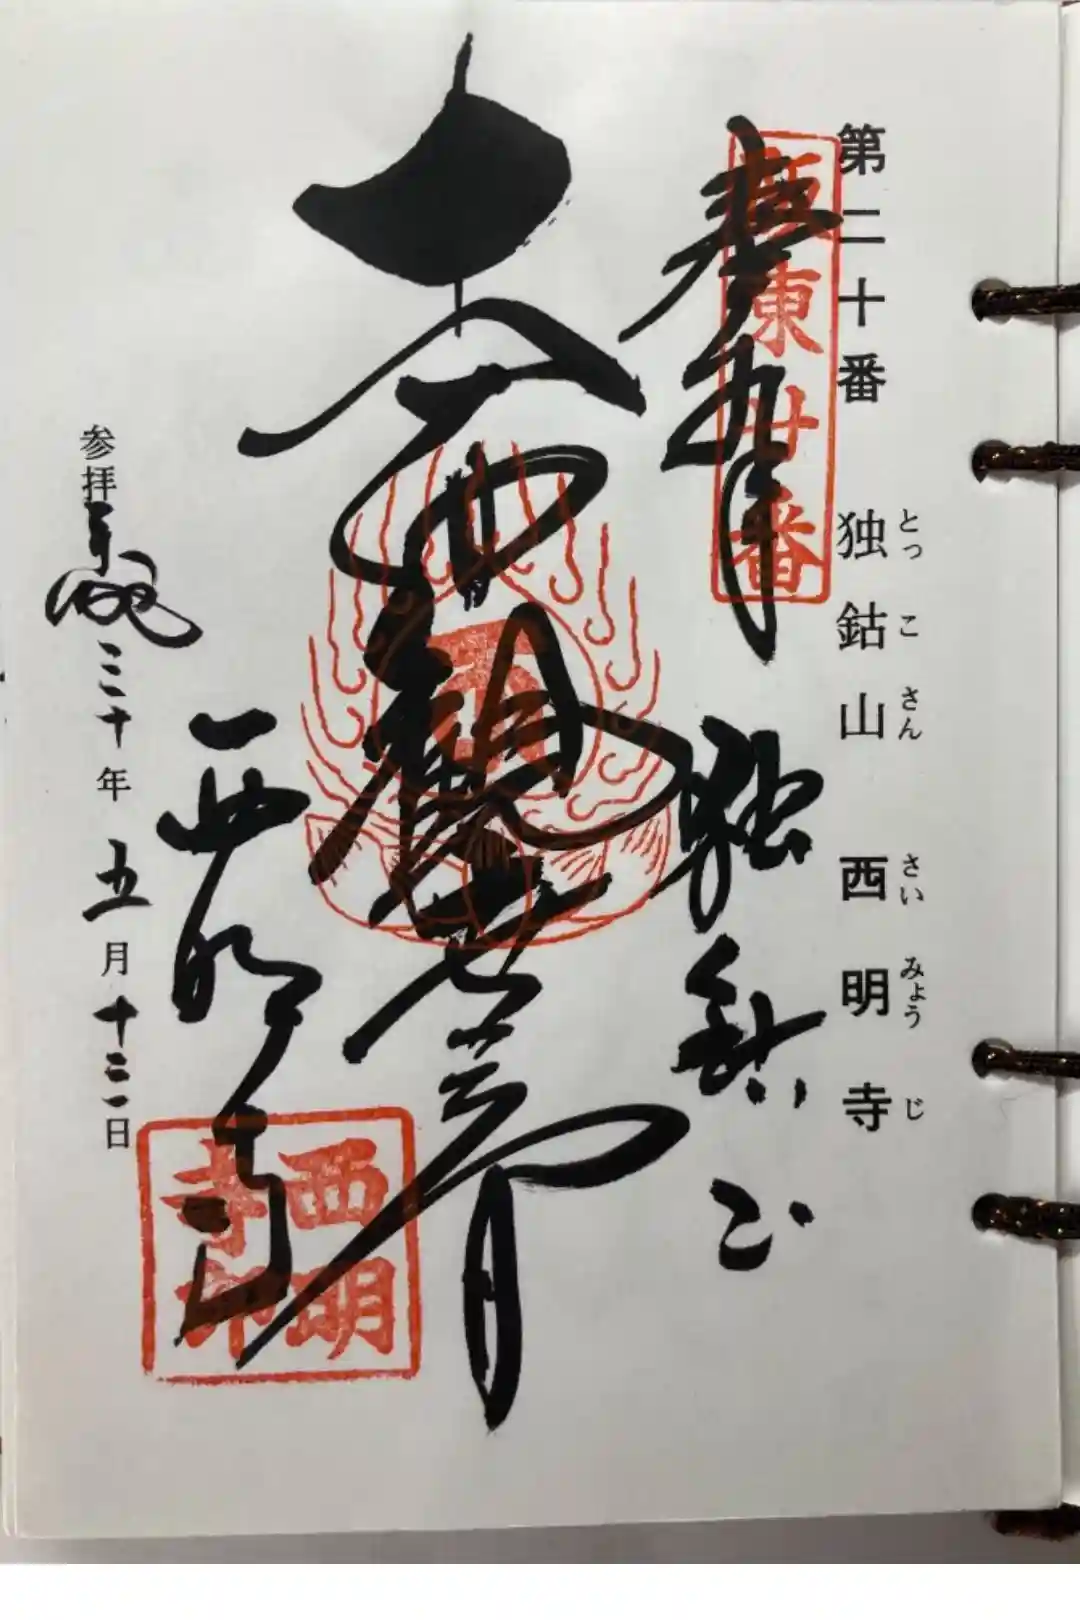 第二十番 独鈷山 西明寺
とっ こ さん さい みょう じ
坂東廿番
奉拝
独鈷山
十一面観世音
西明寺
西明寺印
参拝平成三十年五月十三日